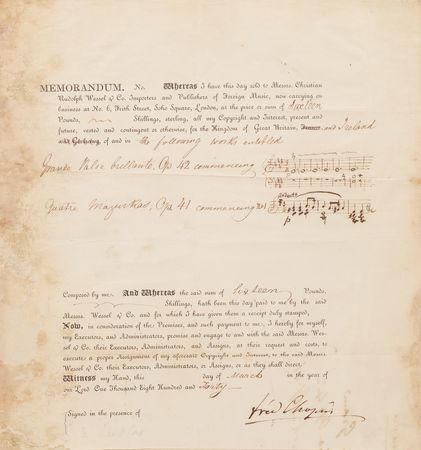 MEMORANDUM. No. Whereas I have this day sold to Messrs. Christian
Rudolph Wessel & Co. Importers and Publishers of Foreign Music, now carrying on
business at No. 6, Frith Street, Soho Square, London, at the price or sum of Sixteen
Pounds, Shillings, sterling, all my Copyright and Interest, present and
future, vested and contingent or otherwise, for the Kingdom of Great Britain, France and Ireland
and Germany, of and in the following works entitled
Grande Valse brillante, Op 42 commencing
Quatre Mazurkas, Op. 41 commencing
Composed by me. And Whereas the said sum of Sixteen Pounds,
Shillings, hath been this day paid to me by the said
Messrs. Wessel & Co. and for which I have given them a receipt duly stamped,
Now, in consideration of the Premises, and such payment to me, I hereby for myself,
my Executors, and Administrators, promise and engage to and with the said Messrs. Wes-
sel & Co. their Executors, Administrators, and Assigns, at their request and costs, to
execute a proper Assignment of my aforesaid Copyright and Interest, to the said Messrs
Wessel & Co. their Executors, Administrators, or Assigns, or as they shall direct.
Witness my Hand, this day of March in the year of
our Lord One Thousand Eight Hundred and Forty
Signed in the presence of
Fréd Chopin